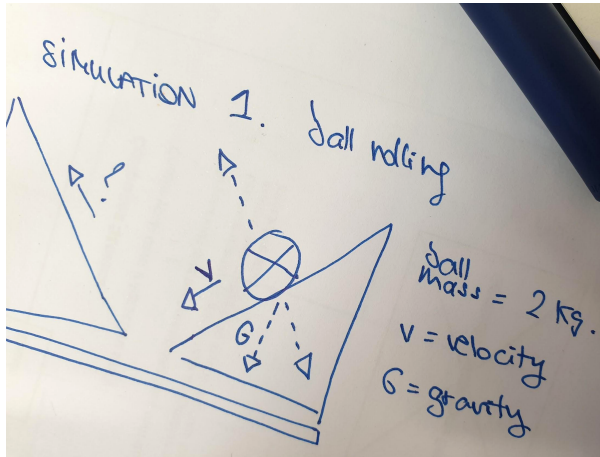 SIMULATION 1. ball rolling
?
V
G
ball
mass = 2 kg.
V = velocity
G = gravity